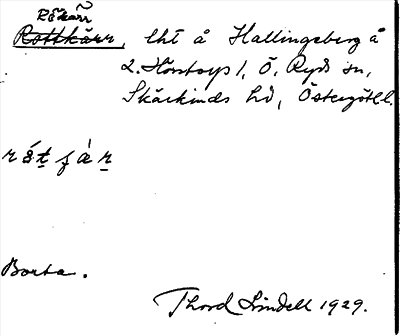 Råkärr
Rottkärr, lht å Hallingeberg å
2. Horstorp 1, Ö. Ryds sn,
Skärkinds hd, Östergötl l.
Borta.
Thord Lindell 1929.